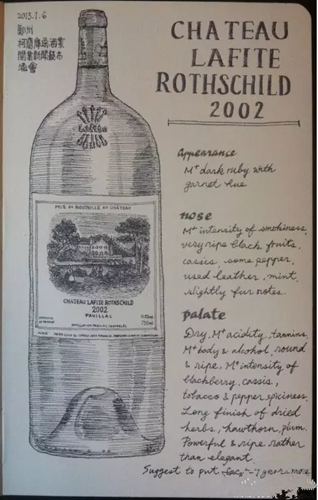 2013.1.6
鄭州
柯慶庫桑酒業
開業新聞發布
酒會
CHATEAU
LAFITE
ROTHSCHILD
2002
MIS EN BOUTEILLE AU CHATEAU
CHATEAU LAFITE ROTHSCHILD
2002
PAUILLAC
Appearance
M+ dark ruby with
garnet hue
nose
M+ intensity of smokiness,
very ripe black fruits,
cassis, some pepper,
used leather, mint,
slightly fur notes.
palate
Dry, M+ acidity, tannins,
M+ body & alcohol, round
& ripe, M+ intensity of
blackberry, cassis,
tobacco & pepper, spiciness.
Long finish of dried
herbs, hawthorn, plum.
Powerful & ripe rather
than elegant.
Suggest to put 7 years more.